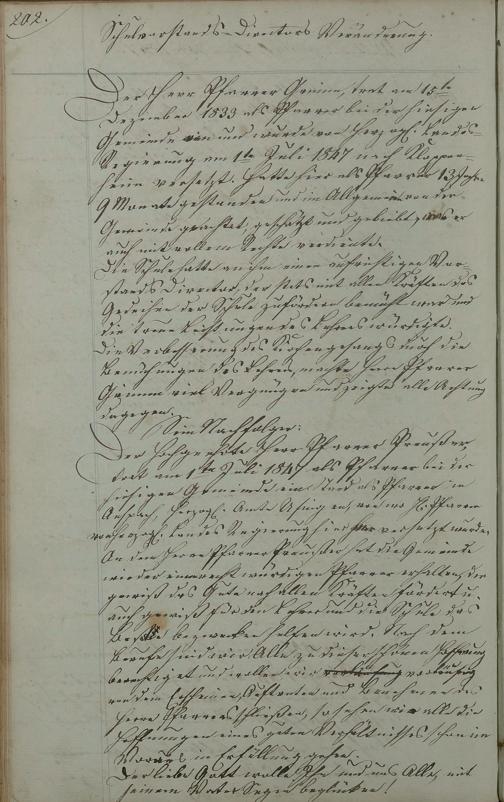 202.
Schulvorstands-Directors Veränderung.
Der Herr Pfarrer Grimm, trat am 15te
Dezember 1833 als Pfarrer bei der hiesigen
Gemeinde ein und wurde von Herzogl. Landes-
Regierung am 1te Juli 1847 nach Kloppen-
heim versetzt. Hatte hier als Pfarrer 13 Jahre
9 Monate gestanden und im Allgemeinen von der
Gemeinde geachtet, geschätzt und geliebt, was er
auch mit vollem Rechte verdiente.
Die Schule hatte an ihm einen aufrichtigen Vor-
stands Director, der stets mit allen Kräften das
Gedeihen der Schule zu fördern bemüht war und
die treue Leistungen des Lehrers würdigte.
Die Verbesserung des Kirchengesangs durch die
Bemühungen des Lehrers, machte Herr Pfarrer
Grimm viel Vergnügen und zeigte alle Achtung
dagegen.
Sein Nachfolger:
Der Hochgeehrte Herr Pfarrer Preußer
trat am 1te Juli 1847 als Pfarrer bei der
hiesigen Gemeinde ein. Stand als Pfarrer in
Anspach, Herzogl. Amts Usingen, von wo H. Pfarrer
von herzogl. Landes Regierung hier her versetzt wurde.
An dem Herrn Pfarrer Preußer hat die Gemeinde
wieder einen recht würdigen Pfarrer erhalten, der
gewiß das Gute nach allen Kräften fördert u.
auch gewiß für den Lehrer und die Schule das
Beste bezwecken helfen wird. Nach dem
Berufe sind wir Alle zu dieser schönen Hoffnung
berechtigt und wollen wir vorläufig
von dem Auftreten und Benehmen des
Herrn Pfarrers schließen, so sehen wir alle die
Hoffnungen eines guten Verhältnisses schon im
Voraus in Erfüllung gehen.
Der liebe Gott wolle Ihn und uns Alle, mit
seinem Vater Segen beglücken!